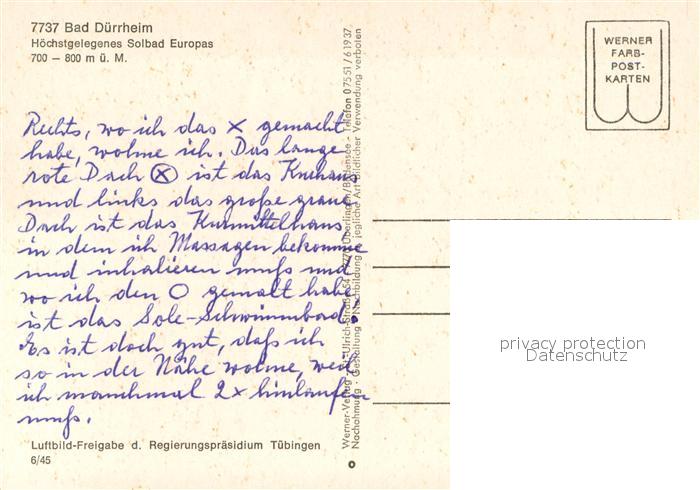 7737 Bad Dürrheim
Höchstgelegenes Solbad Europas
700 — 800 m ü. M.
WERNER
FARB-
POST-
KARTEN
Rechts, wo ich das x gemacht
habe, wohne ich. Das lange
rote Dach ⓧ ist das Kurhaus
und links das große graue
Dach ist das Kurmittelhaus
in dem ich Massagen bekomme
und inhalieren muß und
wo ich den O gemalt habe
ist das Sole-Schwimmbad.
Es ist doch gut, daß ich
so in der Nähe wohne, weil
ich manchmal 2x hinlaufen
muß.
Luftbild-Freigabe d. Regierungspräsidium Tübingen
6/45
Werner-Verlag 777 Überlingen/Bodensee - Telefon 0 75 51 / 6 19 37
Nachahmung - Gestaltung - Nachbildung - jegliche Art bildlicher Verwendung verboten
privacy protection
Datenschutz